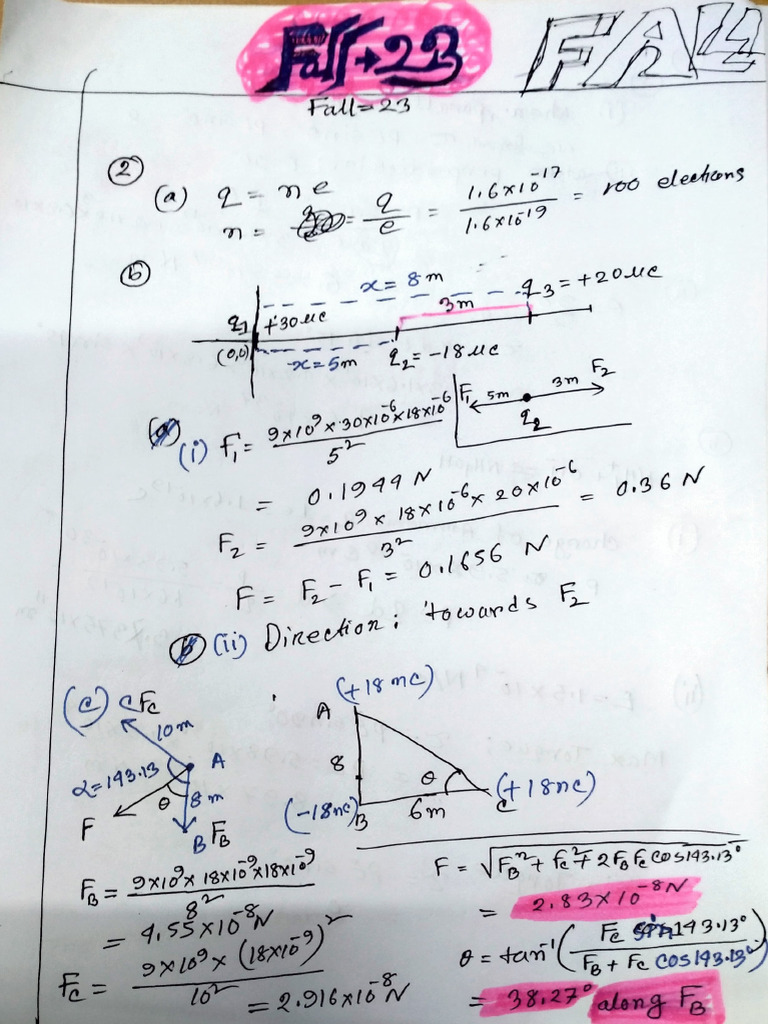 Fall→23
FALL
Fall=23
②
(a) q = ne
n = = q/e = 1.6×10⁻¹⁷/1.6×10⁻¹⁹ = 100 electrons
ⓑ
x = 8m
q₃ = +20μc
3m
q₁ +30μc
(0,0)
x=5m
q₂=-18μc
F₁ 5m 3m F₂
q₂
(i) F₁ = 9×10⁹×30×10⁻⁶×18×10⁻⁶/5²
= 0.1944 N
F₂ = 9×10⁹×18×10⁻⁶×20×10⁻⁶/3² = 0.36 N
F = F₂ - F₁ = 0.1656 N
(ii) Direction: towards F₂
(c) Fc
10m
α=143.13
A
8m
θ
F
B F_B
(+18nc)
A
8
θ
(-18nc)
B 6m C (+18nc)
F_B = 9×10⁹×18×10⁻⁹×18×10⁻⁹/8²
= 4.55×10⁻⁸N
Fc = 9×10⁹×(18×10⁻⁹)²/10²
= 2.916×10⁻⁸N
F = √F_B²+Fc²+2F_B Fc cos143.13°
= 2.83×10⁻⁸N
θ = tan⁻¹(Fc sin143.13°/F_B+Fc cos143.13°)
= 38.27° along F_B